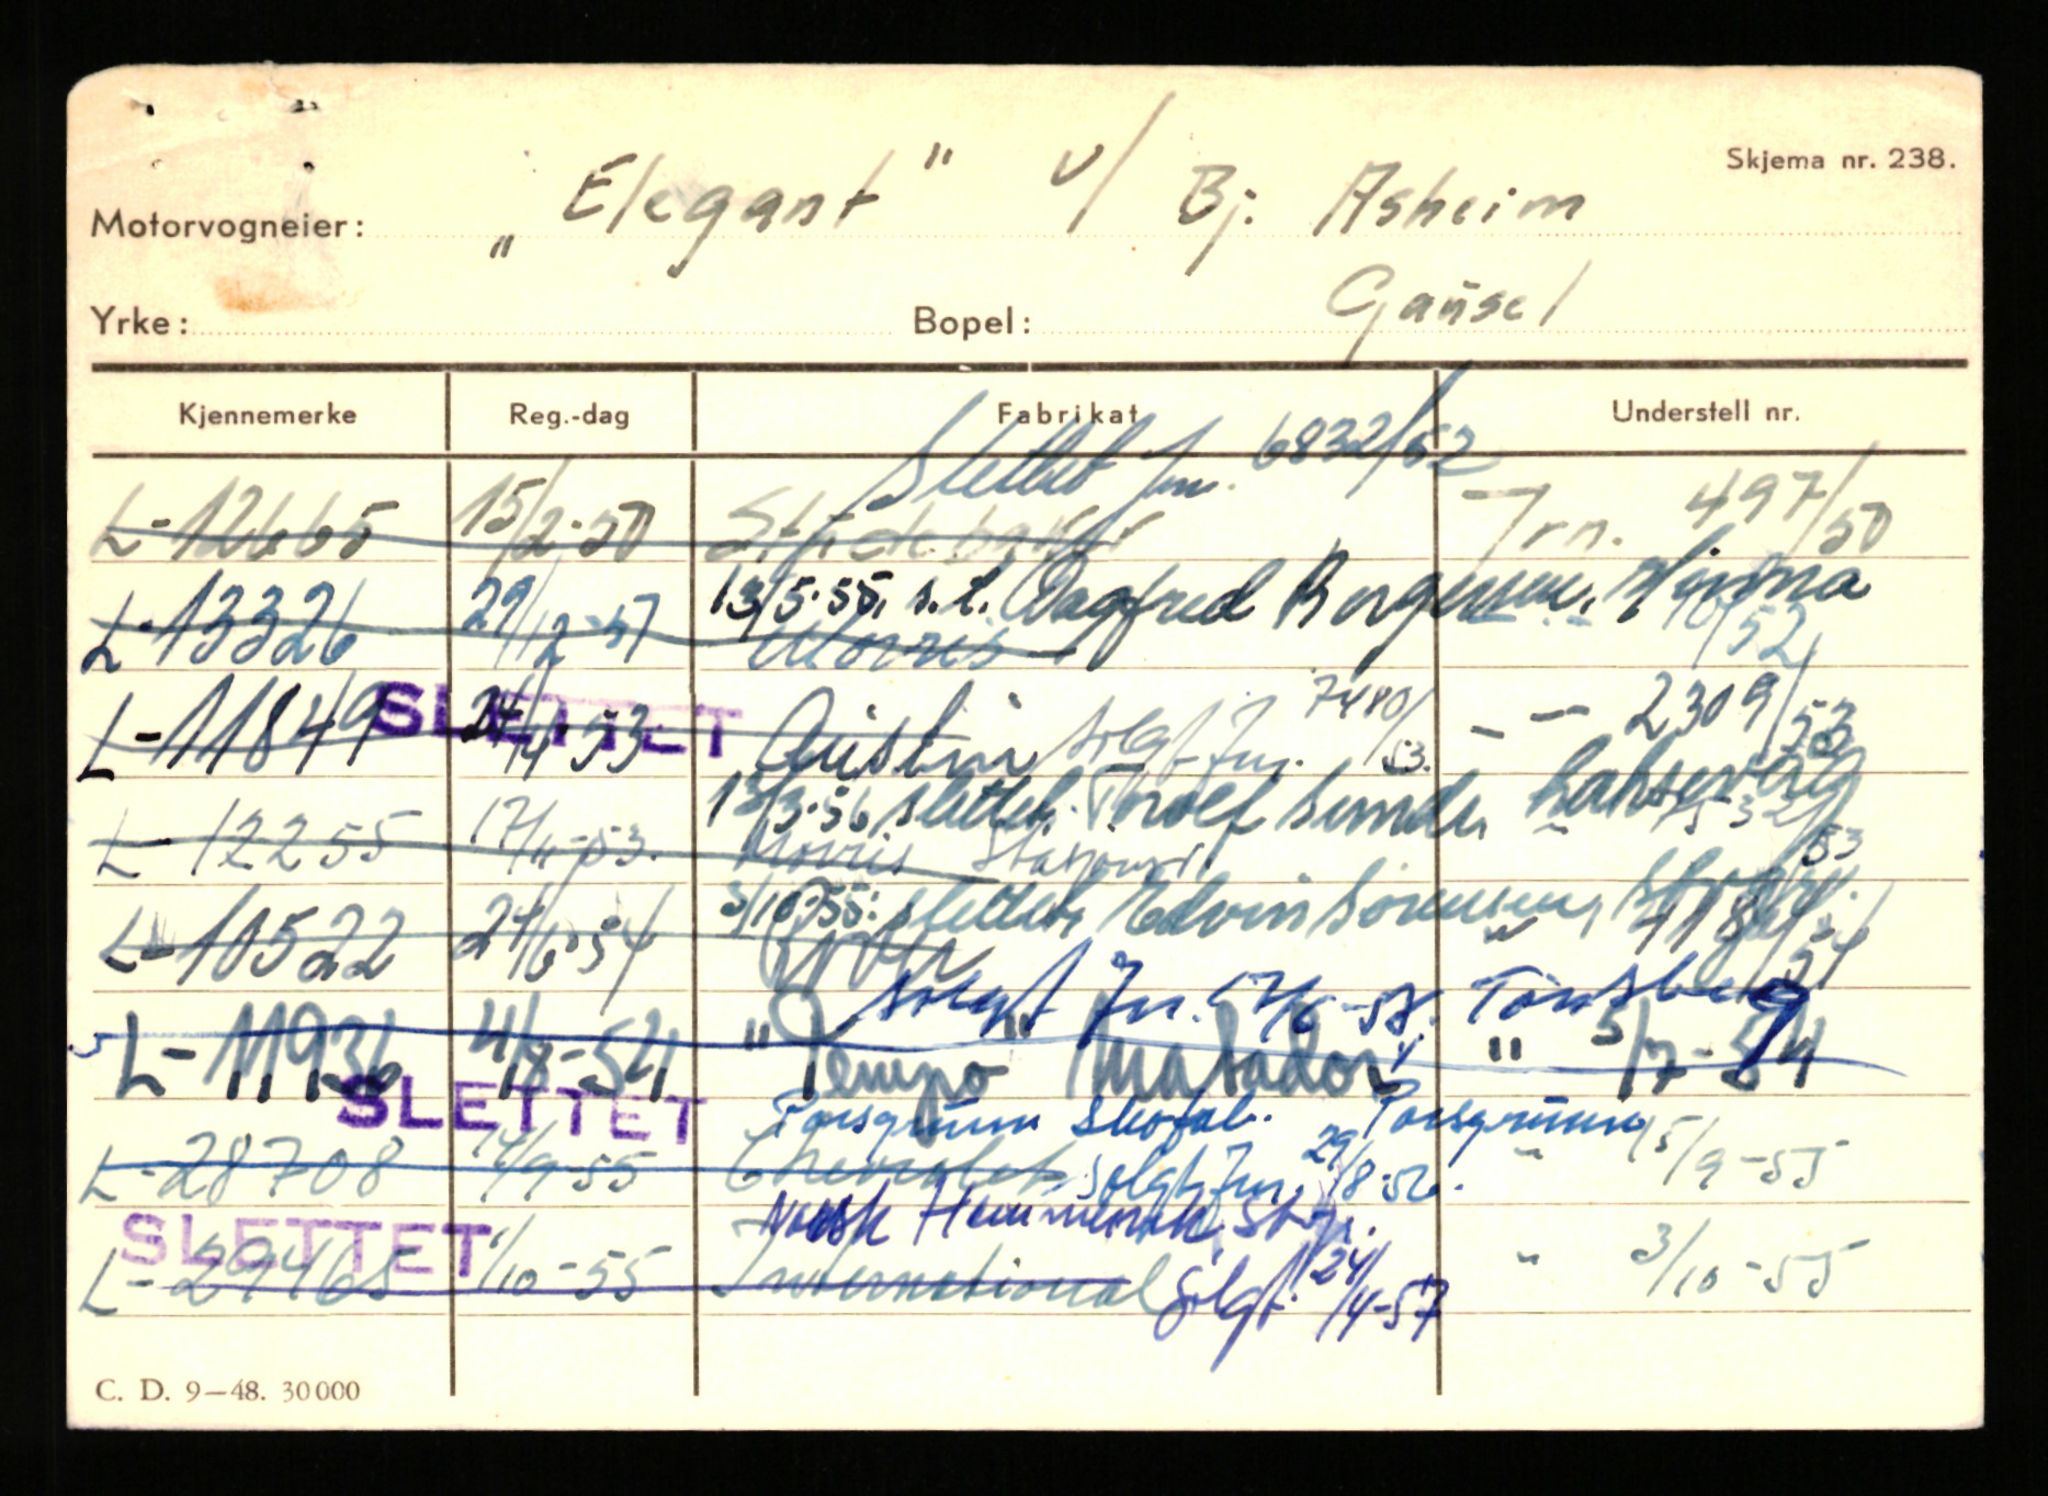 Skjema nr. 238.
Motorvogneier: „Elegant" v/ Bj. Asheim
Yrke: Bopel: Gausel
Kjennemerke Reg.-dag Fabrikat Understell nr.
Slettet Jnr. 6832/52
L-12665 15/2-50 Studebaker Jrn. 497/50
13/5-55, s.l. Dagfred Borgersen, Hinna
L-13326 29/12-51 Morris 10/52
SLETTET
L-11849 24/4-53 Austin solgt Jnr. 7480/53. - — 2309/53
13/3-56 slettet. Throlf Sunde,
L-12255 17/11-53. Morris Stasjonsv. 7532/53
3/10-55: slettet, Edvin Sørensen,
L-10522 24/6-54 " 4184/54
solgt Jnr. 17/6-58. Tønsberg
L-11936 4/8-54 "Tempo" Matador " 5/7-54
SLETTET
Porsgrunn Skofab. Porsgrunn
L-28708 14/9-55 Chevrolet, solgt Jnr. 29/8-56. " 15/9-55
Norsk Hammerverk, Stvgr.
SLETTET
L-29465 1/10-55 International Solgt. 24/4-57 " 3/10-55
C. D. 9—48. 30000